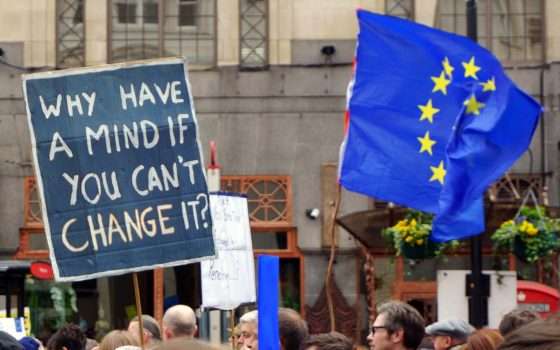 WHY HAVE
A MIND IF
YOU CAN'T
CHANGE IT?